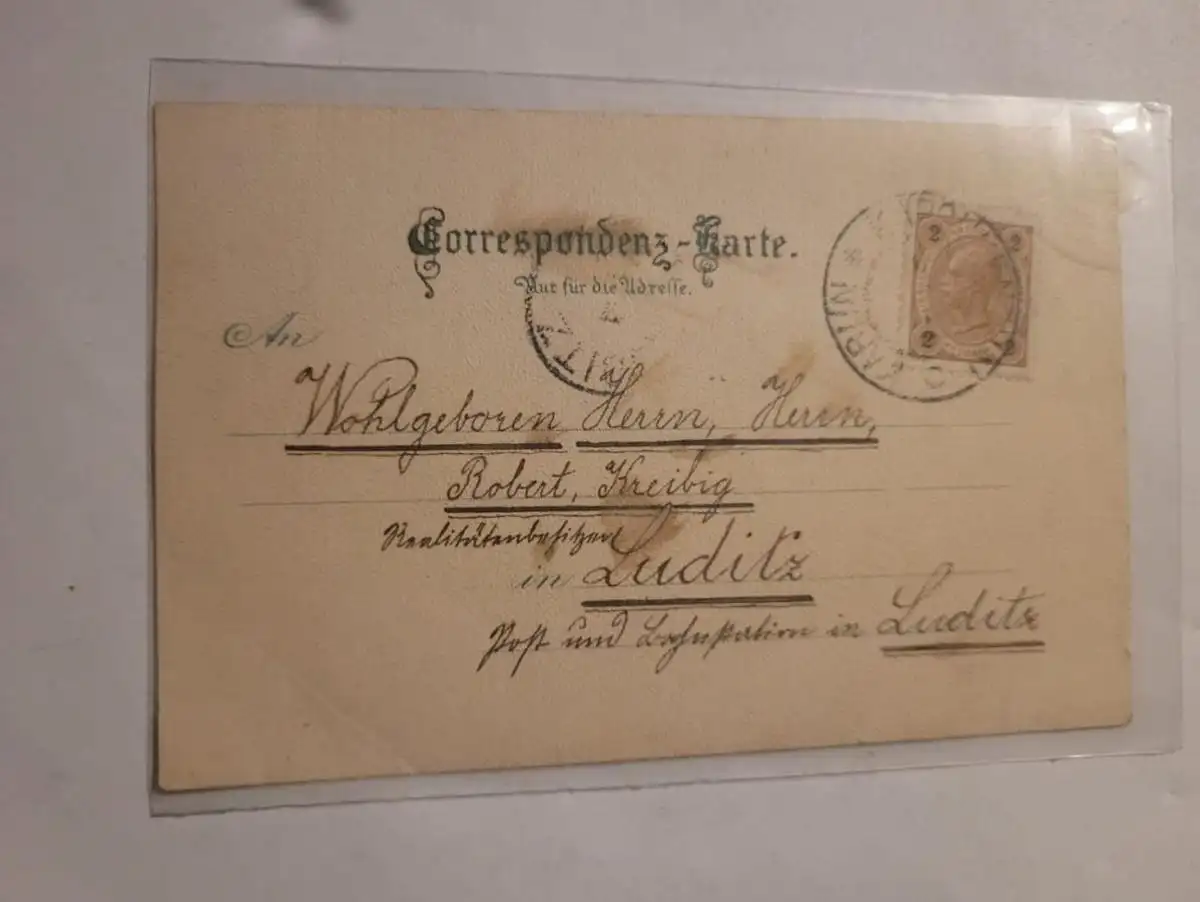 Correspondenz-Karte.
Nur für die Adresse.
An
2 2
2 2
Wohlgeboren Herrn, Herrn,
Robert, Kreibig
Realitätenbesitzer
in Luditz
Post und Bahnstation in Luditz